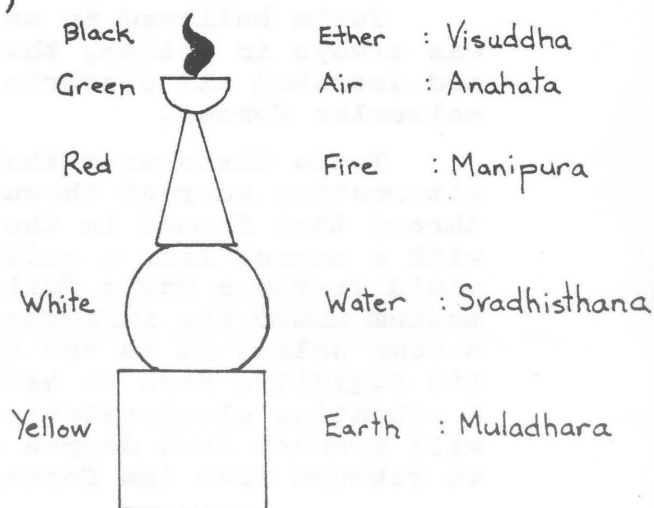 Black Ether : Visuddha
Green Air : Anahata
Red Fire : Manipura
White Water : Svadhisthana
Yellow Earth : Muladhara